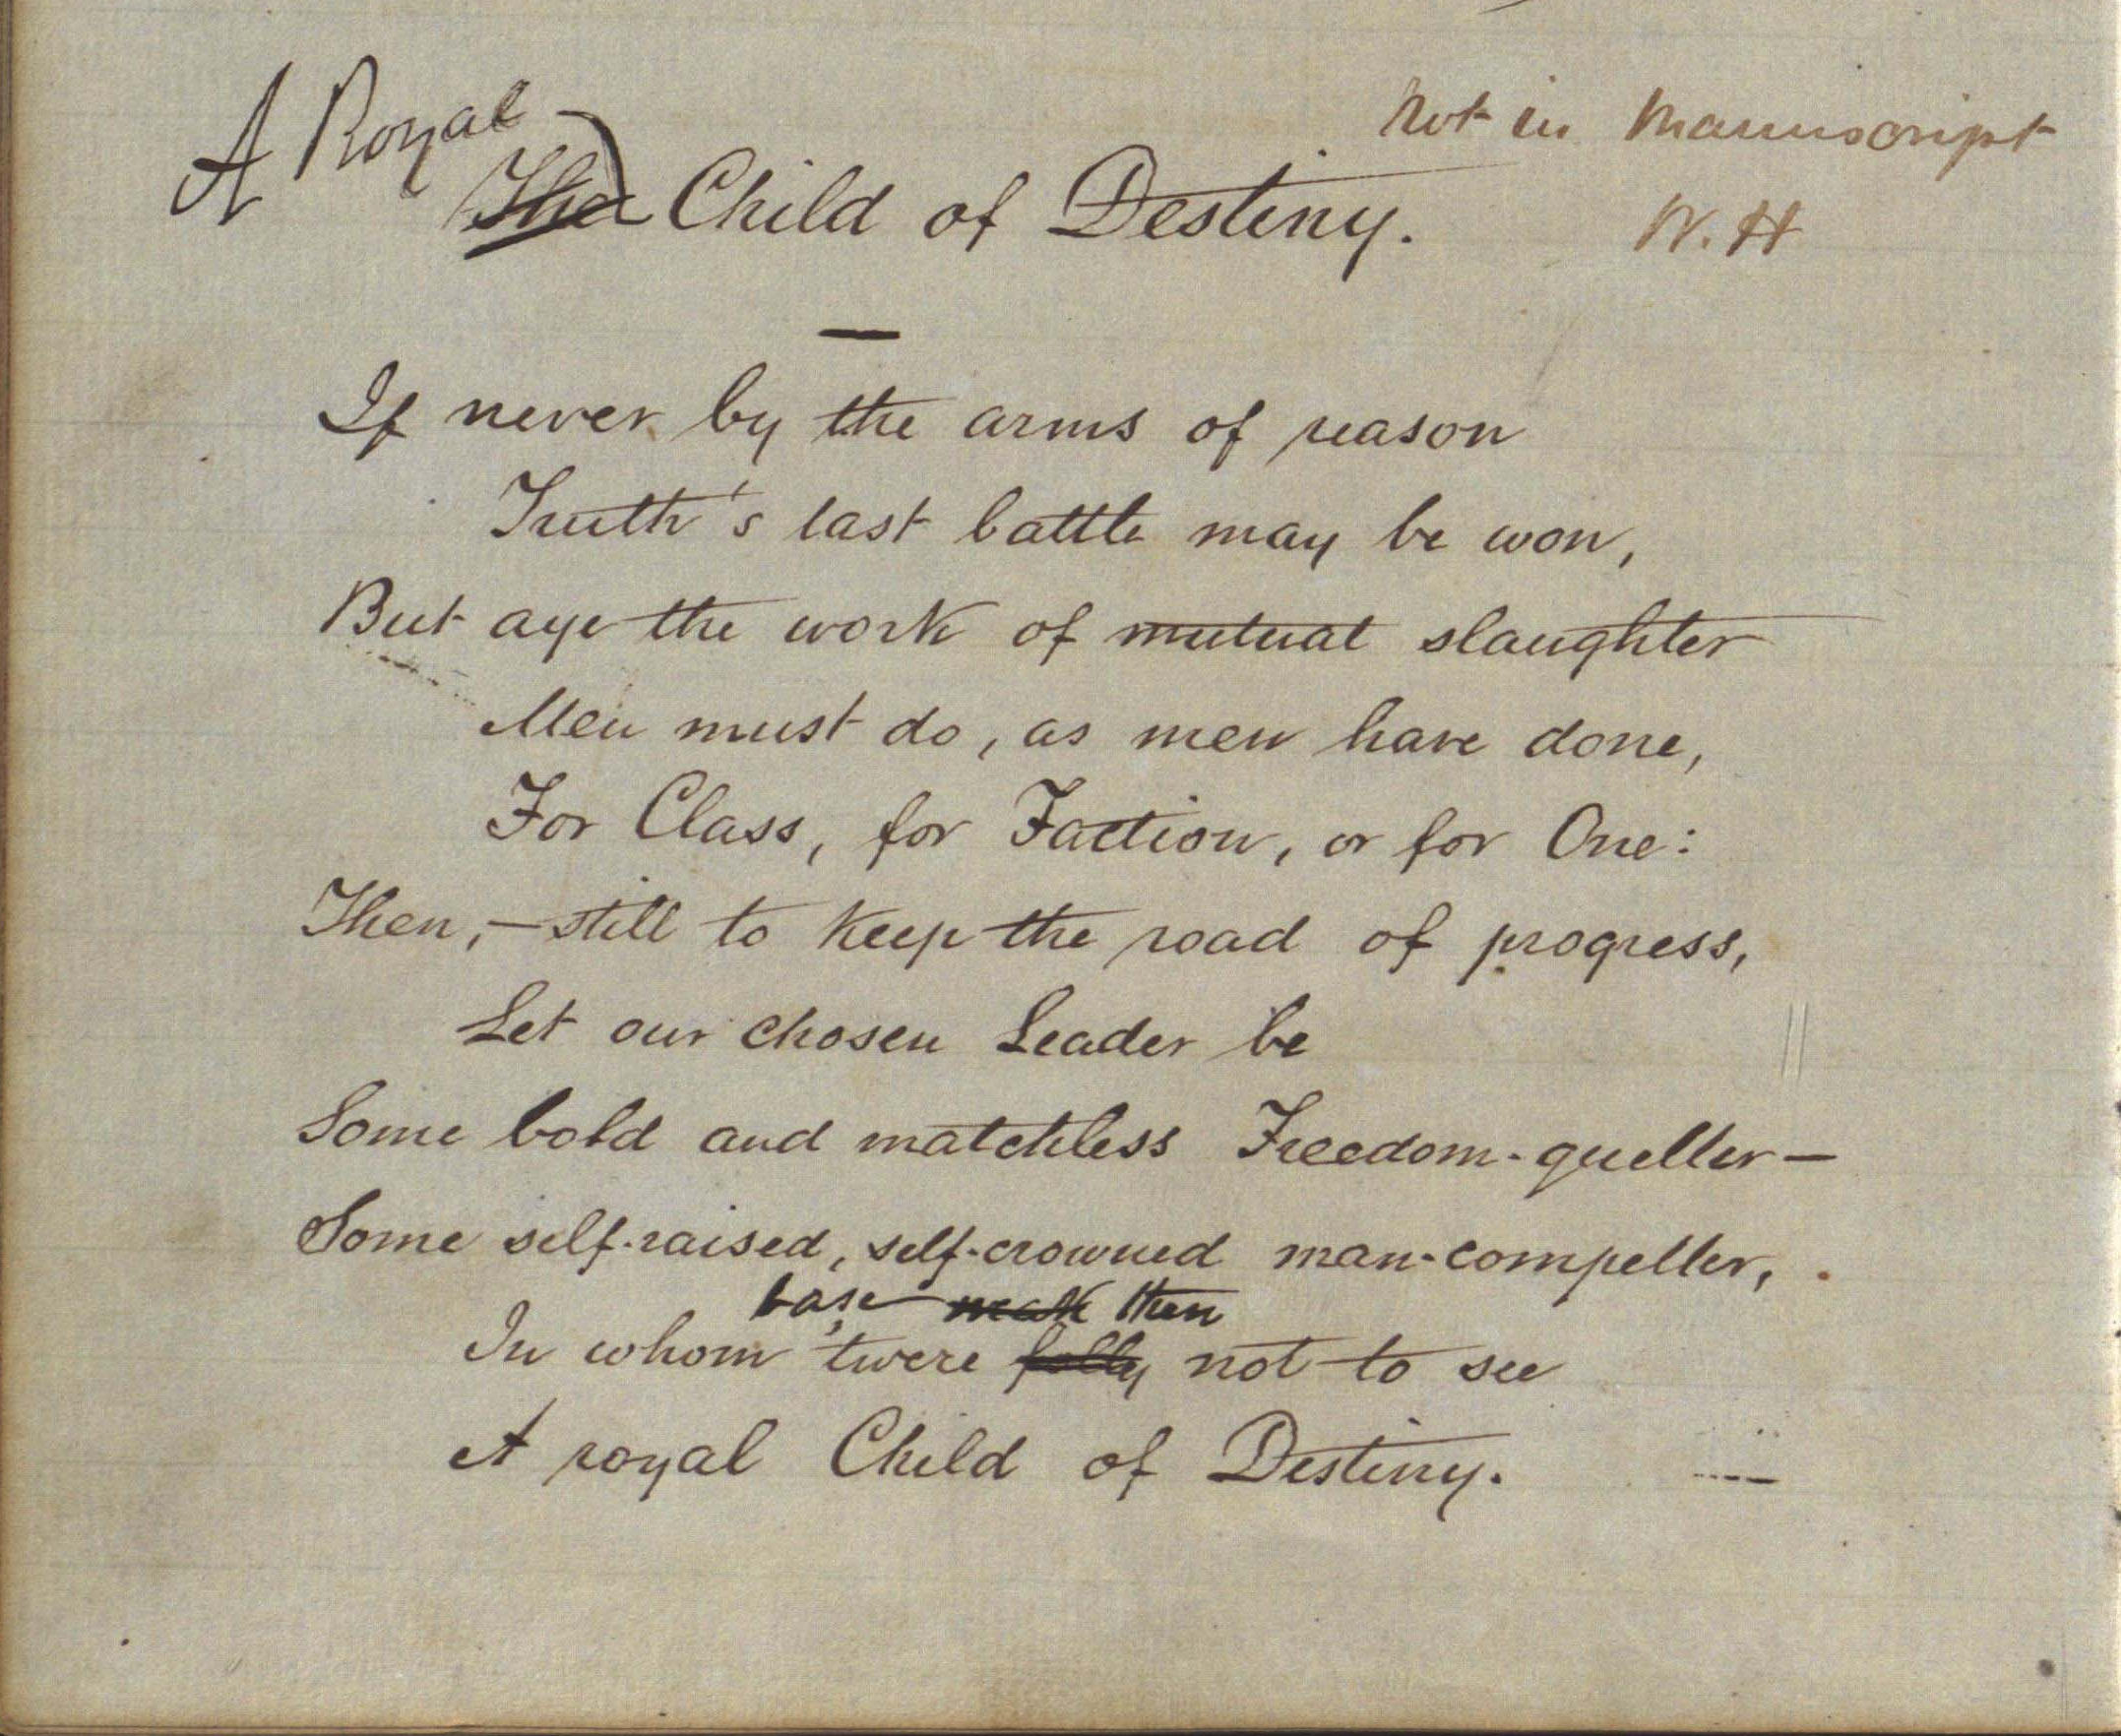 A Royal
Not in Manuscript
The Child of Destiny.
W. H
If never by the arms of reason
Truth's last battle may be won,
But aye the work of mutual slaughter
Men must do, as men have done,
For Class, for Faction, or for One:
Then, — still to keep the road of progress,
Let our chosen Leader be
Some bold and matchless Freedom-queller —
Some self-raised, self-crowned man-compeller,
base weak then
In whom 'twere folly not to see
A royal Child of Destiny.